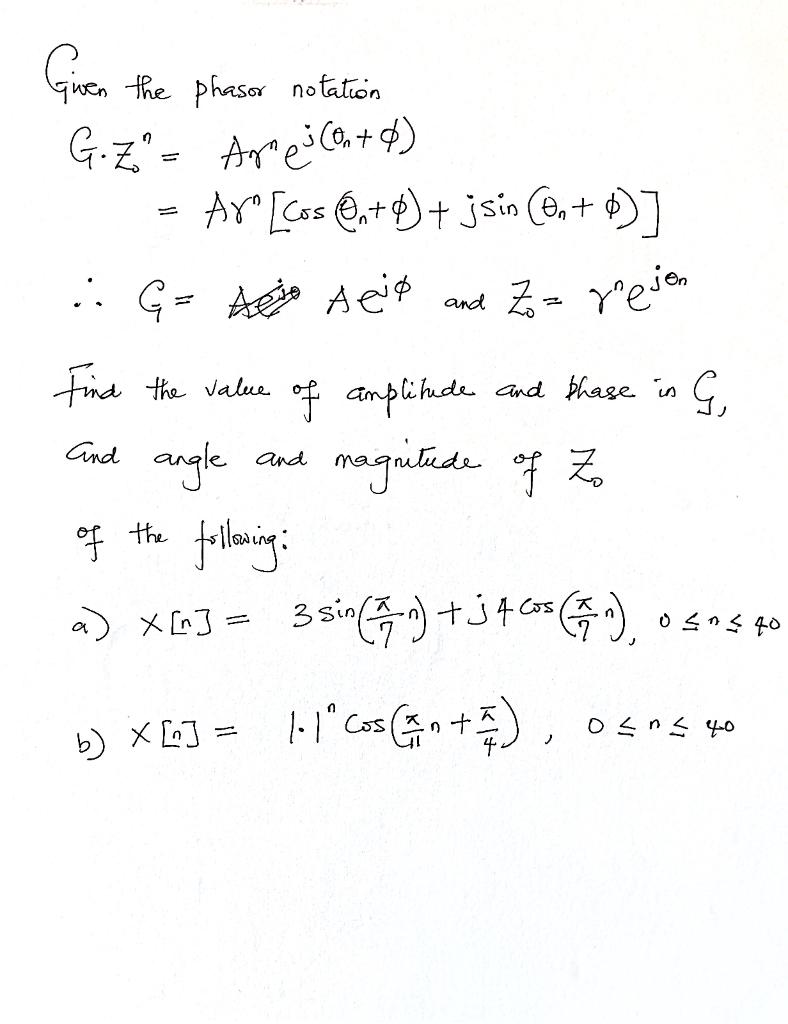 Given the phasor notation
G·Z₀ⁿ = Arⁿe^{j(θn+ϕ)}
= Arⁿ[Cos(θn+ϕ)+jsin(θn+ϕ)]
∴ G = Ae^{jϕ} and Z₀ = rⁿe^{jθn}
Find the value of amplitude and phase in G,
and angle and magnitude of Z₀
of the following:
a) X[n] = 3sin(π/7 n)+j4cos(π/7 n), 0≤n≤40
b) X[n] = 1.1ⁿ Cos(π/11 n+π/4), 0≤n≤40